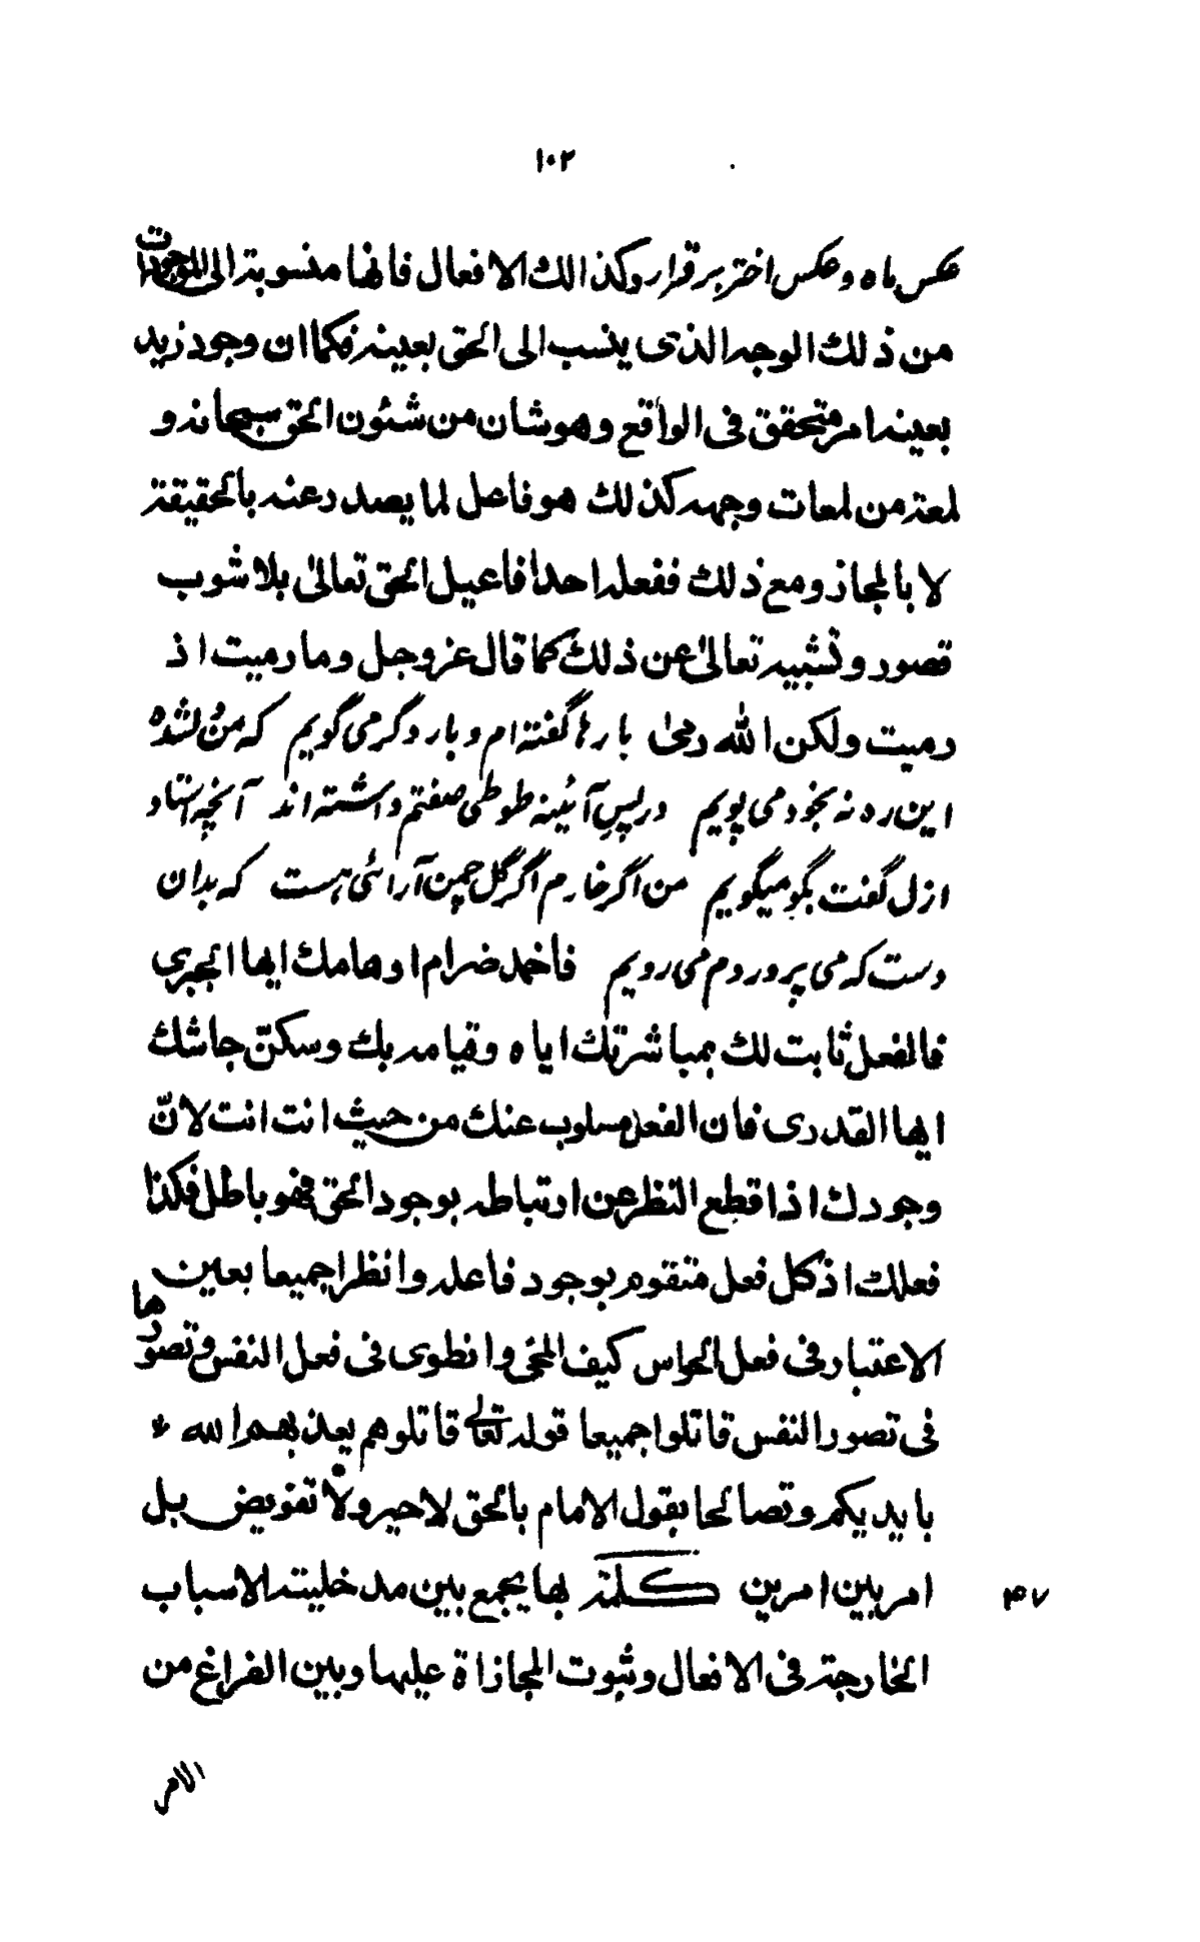 ١٠٢
عکس ماه وعکس اختر برقرار وكذالك الافعال فانها منسوبة الى الموجودات
من ذلك الوجه الذى ينسب الى الحق بعينه فكما ان وجود زيد
بعينه امر متحقق فى الواقع وهو شان من شئون الحق سبحانه و
لمعة من لمعات وجهه كذلك هو فاعل لما يصدر عنه بالحقيقة
لا بالمجاز ومع ذلك ففعله احد افاعيل الحق تعالى بلا شوب
قصور وتشبيه تعالى عن ذلك كما قال عز وجل وما رميت اذ
رميت ولكن الله رمى بارها گفته ام و بار دگر می گویم که من لشده
این ره نه بخود می پویم در پس آئینه طوطی صفتم داشته اند آنچه استاد
ازل گفت بگو میگویم من اگر خارم اگر گل چمن آرائی هست که بدان
دست که می پروردم می رویم فاخمد ضرام اوهامك ايها الجبرى
فالفعل ثابت لك بمباشرتك اياه وقيامه بك وسكن جاشك
ايها القدرى فان الفعل مسلوب عنك من حيث انت انت لانّ
وجودك اذا قطع النظر عن ارتباطه بوجود الحق فهو باطل فكذا
فعلك اذ كل فعل متقوم بوجود فاعله وانظرا جميعا بعين
الاعتبار فى فعل الحواس كيف انمحى وانطوى فى فعل النفس وتصورها
فى تصور النفس قاتلوا جميعا قوله تعالى قاتلوهم يعذبهم الله *
بايديكم وتصالحا بقول الامام بالحق لا جبر ولا تفويض بل
امر بين امرين كلمة بها يجمع بين مدخلية الاسباب
۴۷
الخارجة فى الافعال وثبوت المجازاة عليها وبين الفراغ من
الامر